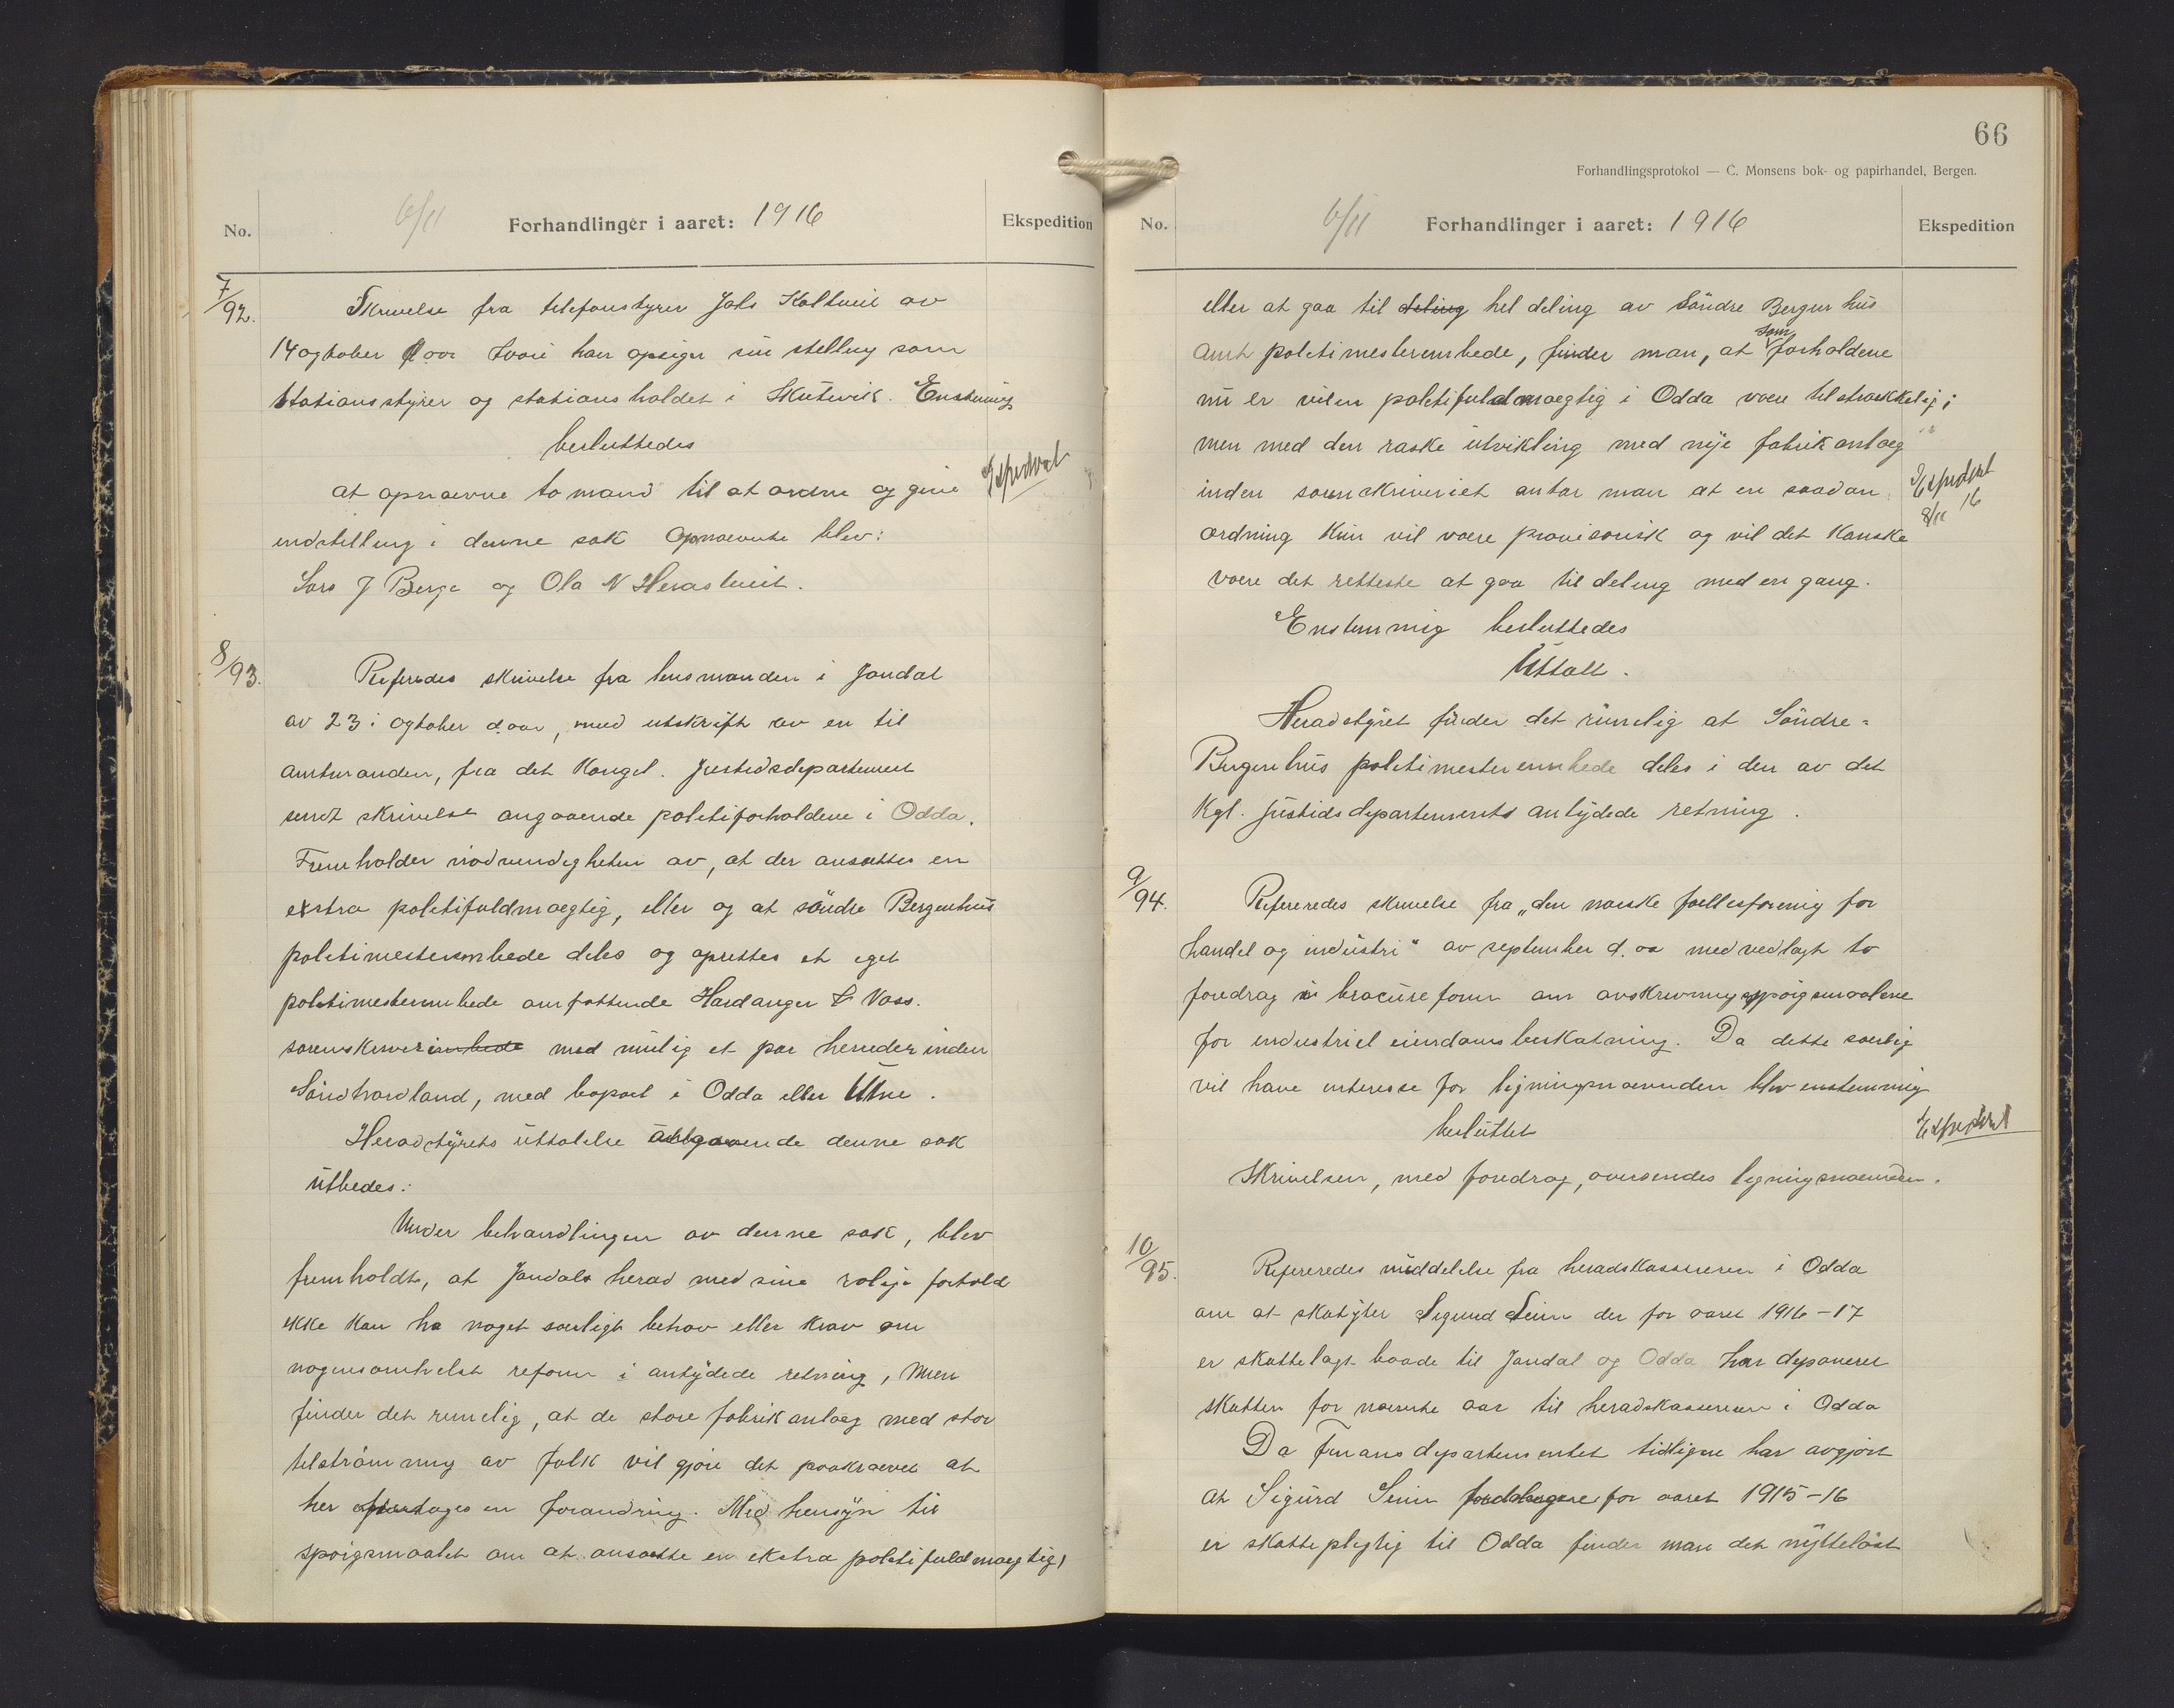 No.
6/11 Forhandlinger i aaret: 1916
Ekspedition
7/92. Skrivelse fra telefonstyrer Johs Kolltveit av
14 ogtober d aar hvori han opsiger sin stelling som
stationsstyrer og stationsholdet i Skutevik. Enstemig
besluttedes
at opnævne to mand til at ordne og give
Expedert
indstelling i denne sak Opnævnte blev:
Lars J Berge og Ola N Herastveit.
8/93. Refereredes skrivelse fra lensmanden i Jondal
av 23 i ogtober d. aar, med utskrift av en til
amtmanden, fra det Kongel. Justidsdepartement
sendt skrivelse angaaende politiforholdene i Odda.
Fremholder nødvendigheten av, at der ansættes en
exstra politifuldmægtig, eller og at søndre Bergenhus
politimesterembede deles og oprettes et eget
politimesterembede omfattende Hardanger & Voss.
sorenskriverimbede med mulig et par herreder inden
Søndhordland, med bopæl i Odda eller Utne.
Heradstyrets uttalelse angaaende denne sak
utbedes:
Under behandlingen av denne sak, blev
fremholdt, at Jondals herad med sine rolige forhold
ikke kan ha noget særligt behov eller krav om
nogensomhelst reform i antydede retning, men
finder det rimelig, at de store fabrikanlæg med stor
telstrømning av folk vil gjøre det paakrævet at
her foretages en forandring. Med hensyn til
spørgsmaalet om at ansætte en ekstra politifuldmægtig,
66
Forhandlingsprotokol — C. Monsens bok- og papirhandel, Bergen.
No.
6/11 Forhandlinger i aaret: 1916
Ekspedition
eller at gaa til deling hel deling av Søndre Bergenhus
amt politimesterembede, finder man, at som forholdene
nu er vil en politifuldmægtig i Odda være tilstrækkelig;
men med den raske utvikling med nye fabrikanlæg
inden sorenskriveriet antar man at en saadan
Expedert
8/11 16
ordning kun vil være provisorisk og vil det kanske
være det retteste at gaa til deling med en gang.
Enstemmig besluttedes
Uttalt.
Heradstyret finder det rimelig at Søndre-
Bergenhus politimesterembede deles i den av det
Kgl. Justidsdepartements antydede retning.
9/94. Refereredes skrivelse fra „den norske fællesforening for
handel og industri“ av september d. aa med vedlagt to
foredrag i brocureform om avskrivningsspørgsmaalene
for industriel eiendomsbeskatning. Da dette særlig
vil have interesse for ligningsnævnden blev enstemmig
besluttet
Expedert
Skrivelsen, med foredrag, oversendes ligningsnævnden.
10/95. Refereredes middelelse fra heradskassereren i Odda
om at skatyter Sigurd Seim der for aaret 1916-17
er skattelagt baade til Jondal og Odda har deponeret
skatten for nævnte aar til heradskassereren i Odda
Da Finansdepartementet tidligere har avgjort
at Sigurd Seim for aaret 1915-16
er skattepligtig til Odda finder man det nytteløst